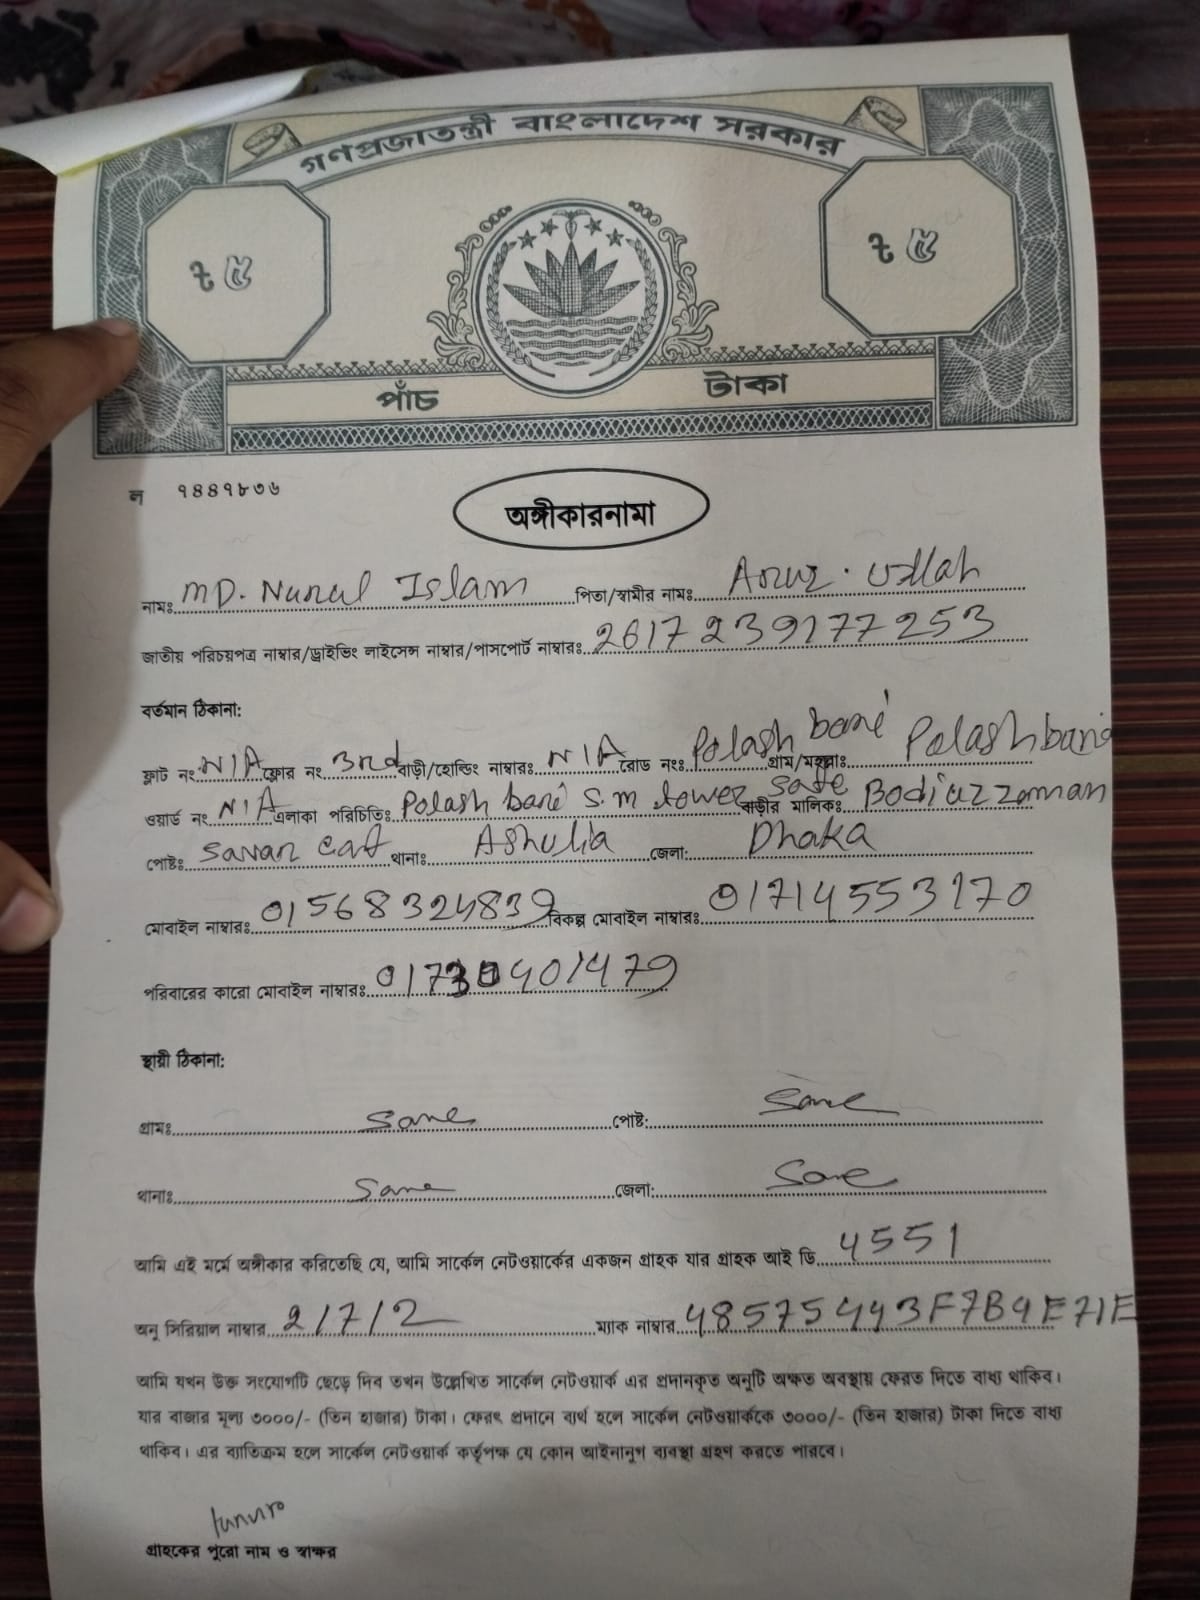 গণপ্রজাতন্ত্রী বাংলাদেশ সরকার
৳ ৫ ৳ ৫
পাঁচ টাকা
ল ৭৪৪৭৮৩৬
অঙ্গীকারনামা
নামঃ MD. Nurul Islam পিতা/স্বামীর নামঃ Azuz. Ullah
জাতীয় পরিচয়পত্র নাম্বার/ড্রাইভিং লাইসেন্স নাম্বার/পাসপোর্ট নাম্বারঃ 2617239177253
বর্তমান ঠিকানা:
ফ্লাট নং N/A ফ্লোর নং 3rd বাড়ী/হোল্ডিং নাম্বারঃ N/A রোড নংঃ Polash bari গ্রাম/মহল্লাঃ Polashbari
ওয়ার্ড নং N/A এলাকা পরিচিতিঃ Polash bari S.M tower বাড়ীর মালিকঃ Bodiuzzaman
পোষ্টঃ Savar cant থানাঃ Ashulia জেলা: Dhaka
মোবাইল নাম্বারঃ 01568324839 বিকল্প মোবাইল নাম্বারঃ 01714553170
পরিবারের কারো মোবাইল নাম্বারঃ 01730401479
স্থায়ী ঠিকানা:
গ্রামঃ Same পোষ্ট: Same
থানাঃ Same জেলা: Same
আমি এই মর্মে অঙ্গীকার করিতেছি যে, আমি সার্কেল নেটওয়ার্কের একজন গ্রাহক যার গ্রাহক আই ডি 4551
অনু সিরিয়াল নাম্বার 21712 ম্যাক নাম্বার 48575443F7B4E71E
আমি যখন উক্ত সংযোগটি ছেড়ে দিব তখন উল্লেখিত সার্কেল নেটওয়ার্ক এর প্রদানকৃত অনুটি অক্ষত অবস্থায় ফেরত দিতে বাধ্য থাকিব।
যার বাজার মূল্য ৩০০০/- (তিন হাজার) টাকা। ফেরৎ প্রদানে ব্যর্থ হলে সার্কেল নেটওয়ার্ককে ৩০০০/- (তিন হাজার) টাকা দিতে বাধ্য
থাকিব। এর ব্যতিক্রম হলে সার্কেল নেটওয়ার্ক কর্তৃপক্ষ যে কোন আইনানুগ ব্যবস্থা গ্রহণ করতে পারবে।
গ্রাহকের পুরো নাম ও স্বাক্ষর